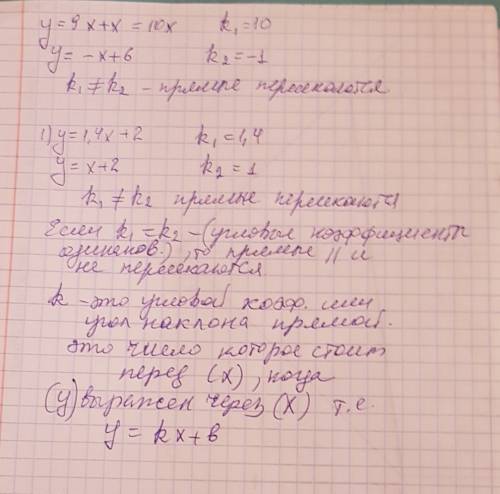 y = 9x+x = 10x k₁=10
y = -x+6 k₂=-1
k₁ ≠ k₂ - прямые пересекаются
1) y=1,4x+2 k₁=1,4
y = x+2 k₂=1
k₁ ≠ k₂ прямые пересекаются
Если k₁=k₂ - (угловые коэффициенты
одинаков.), то прямые || и
не пересекаются
k - это угловой коэф. или
угол наклона прямой.
это число которое стоит
перед (x), когда
(y) выражен через (x) т.е.
y = kx+b